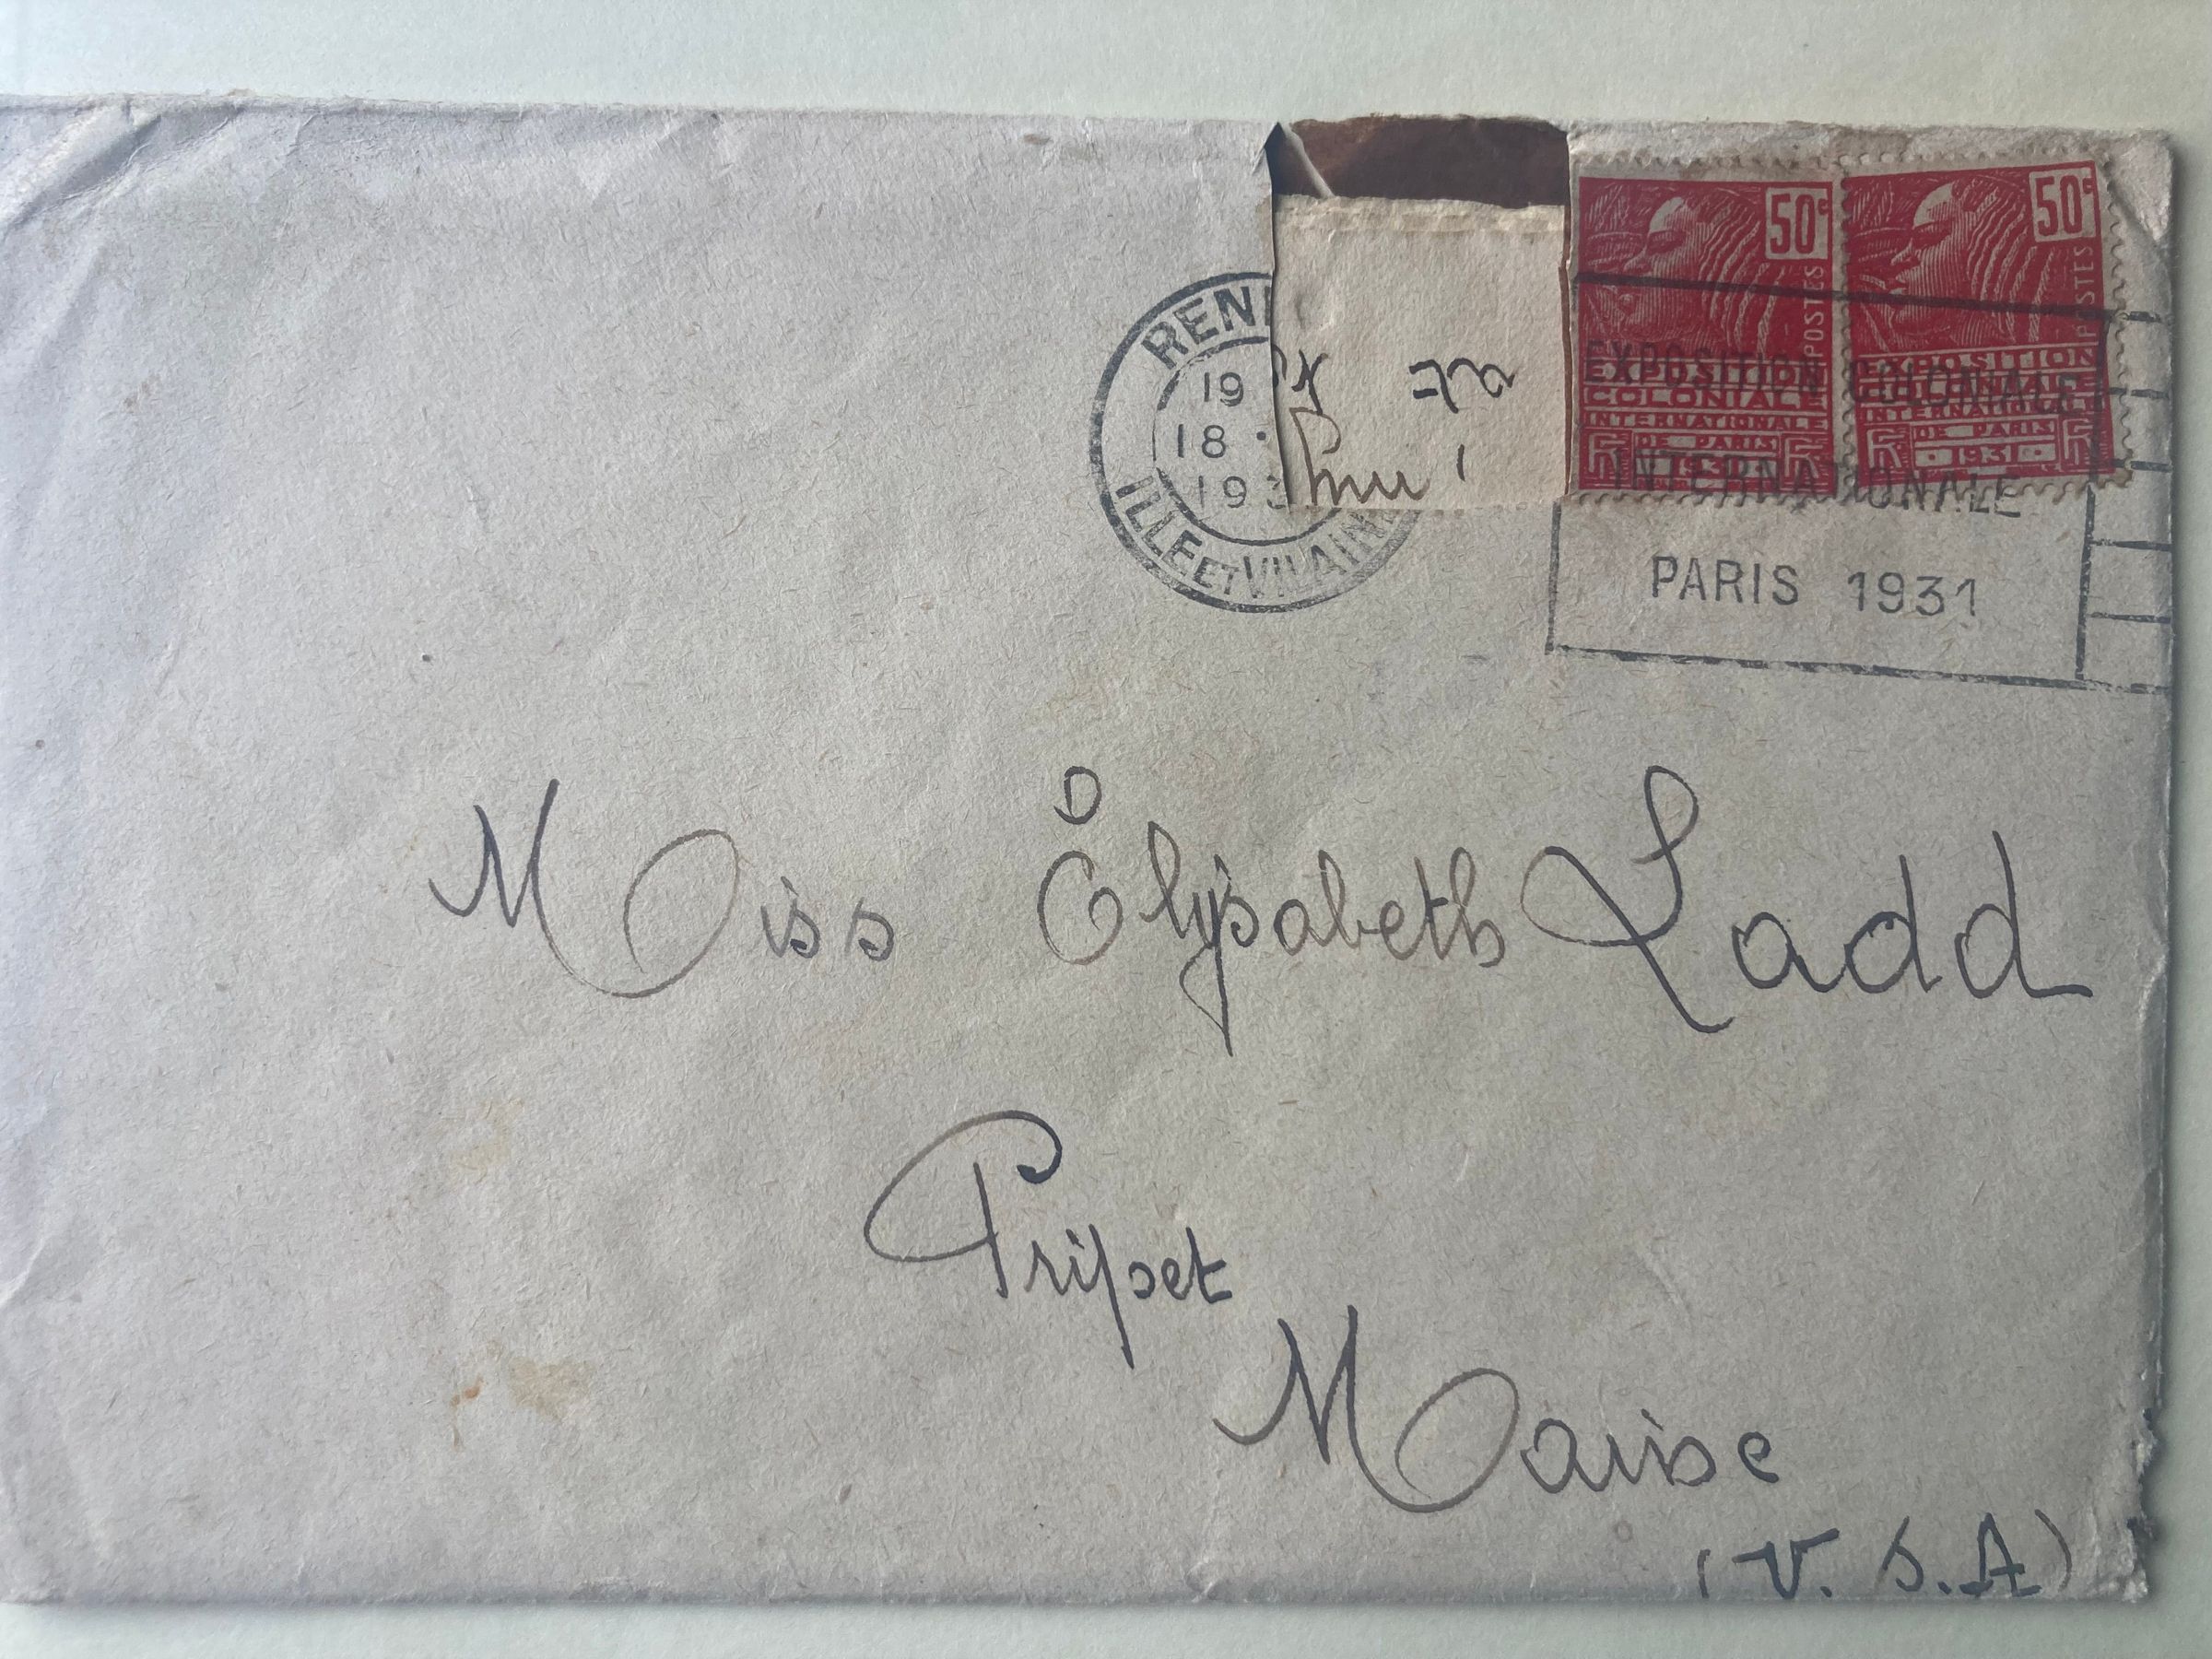 50c
POSTES
EXPOSITION
COLONIALE
INTERNATIONALE
DE PARIS
1931
50c
POSTES
EXPOSITION
COLONIALE
INTERNATIONALE
DE PARIS
• 1931 •
19
18
ILLE ET VILAINE
EXPOSITION COLONIALE
INTERNATIONALE
PARIS 1931
Miss Elysabeth Ladd
Pripset
Maine
(U. S. A)